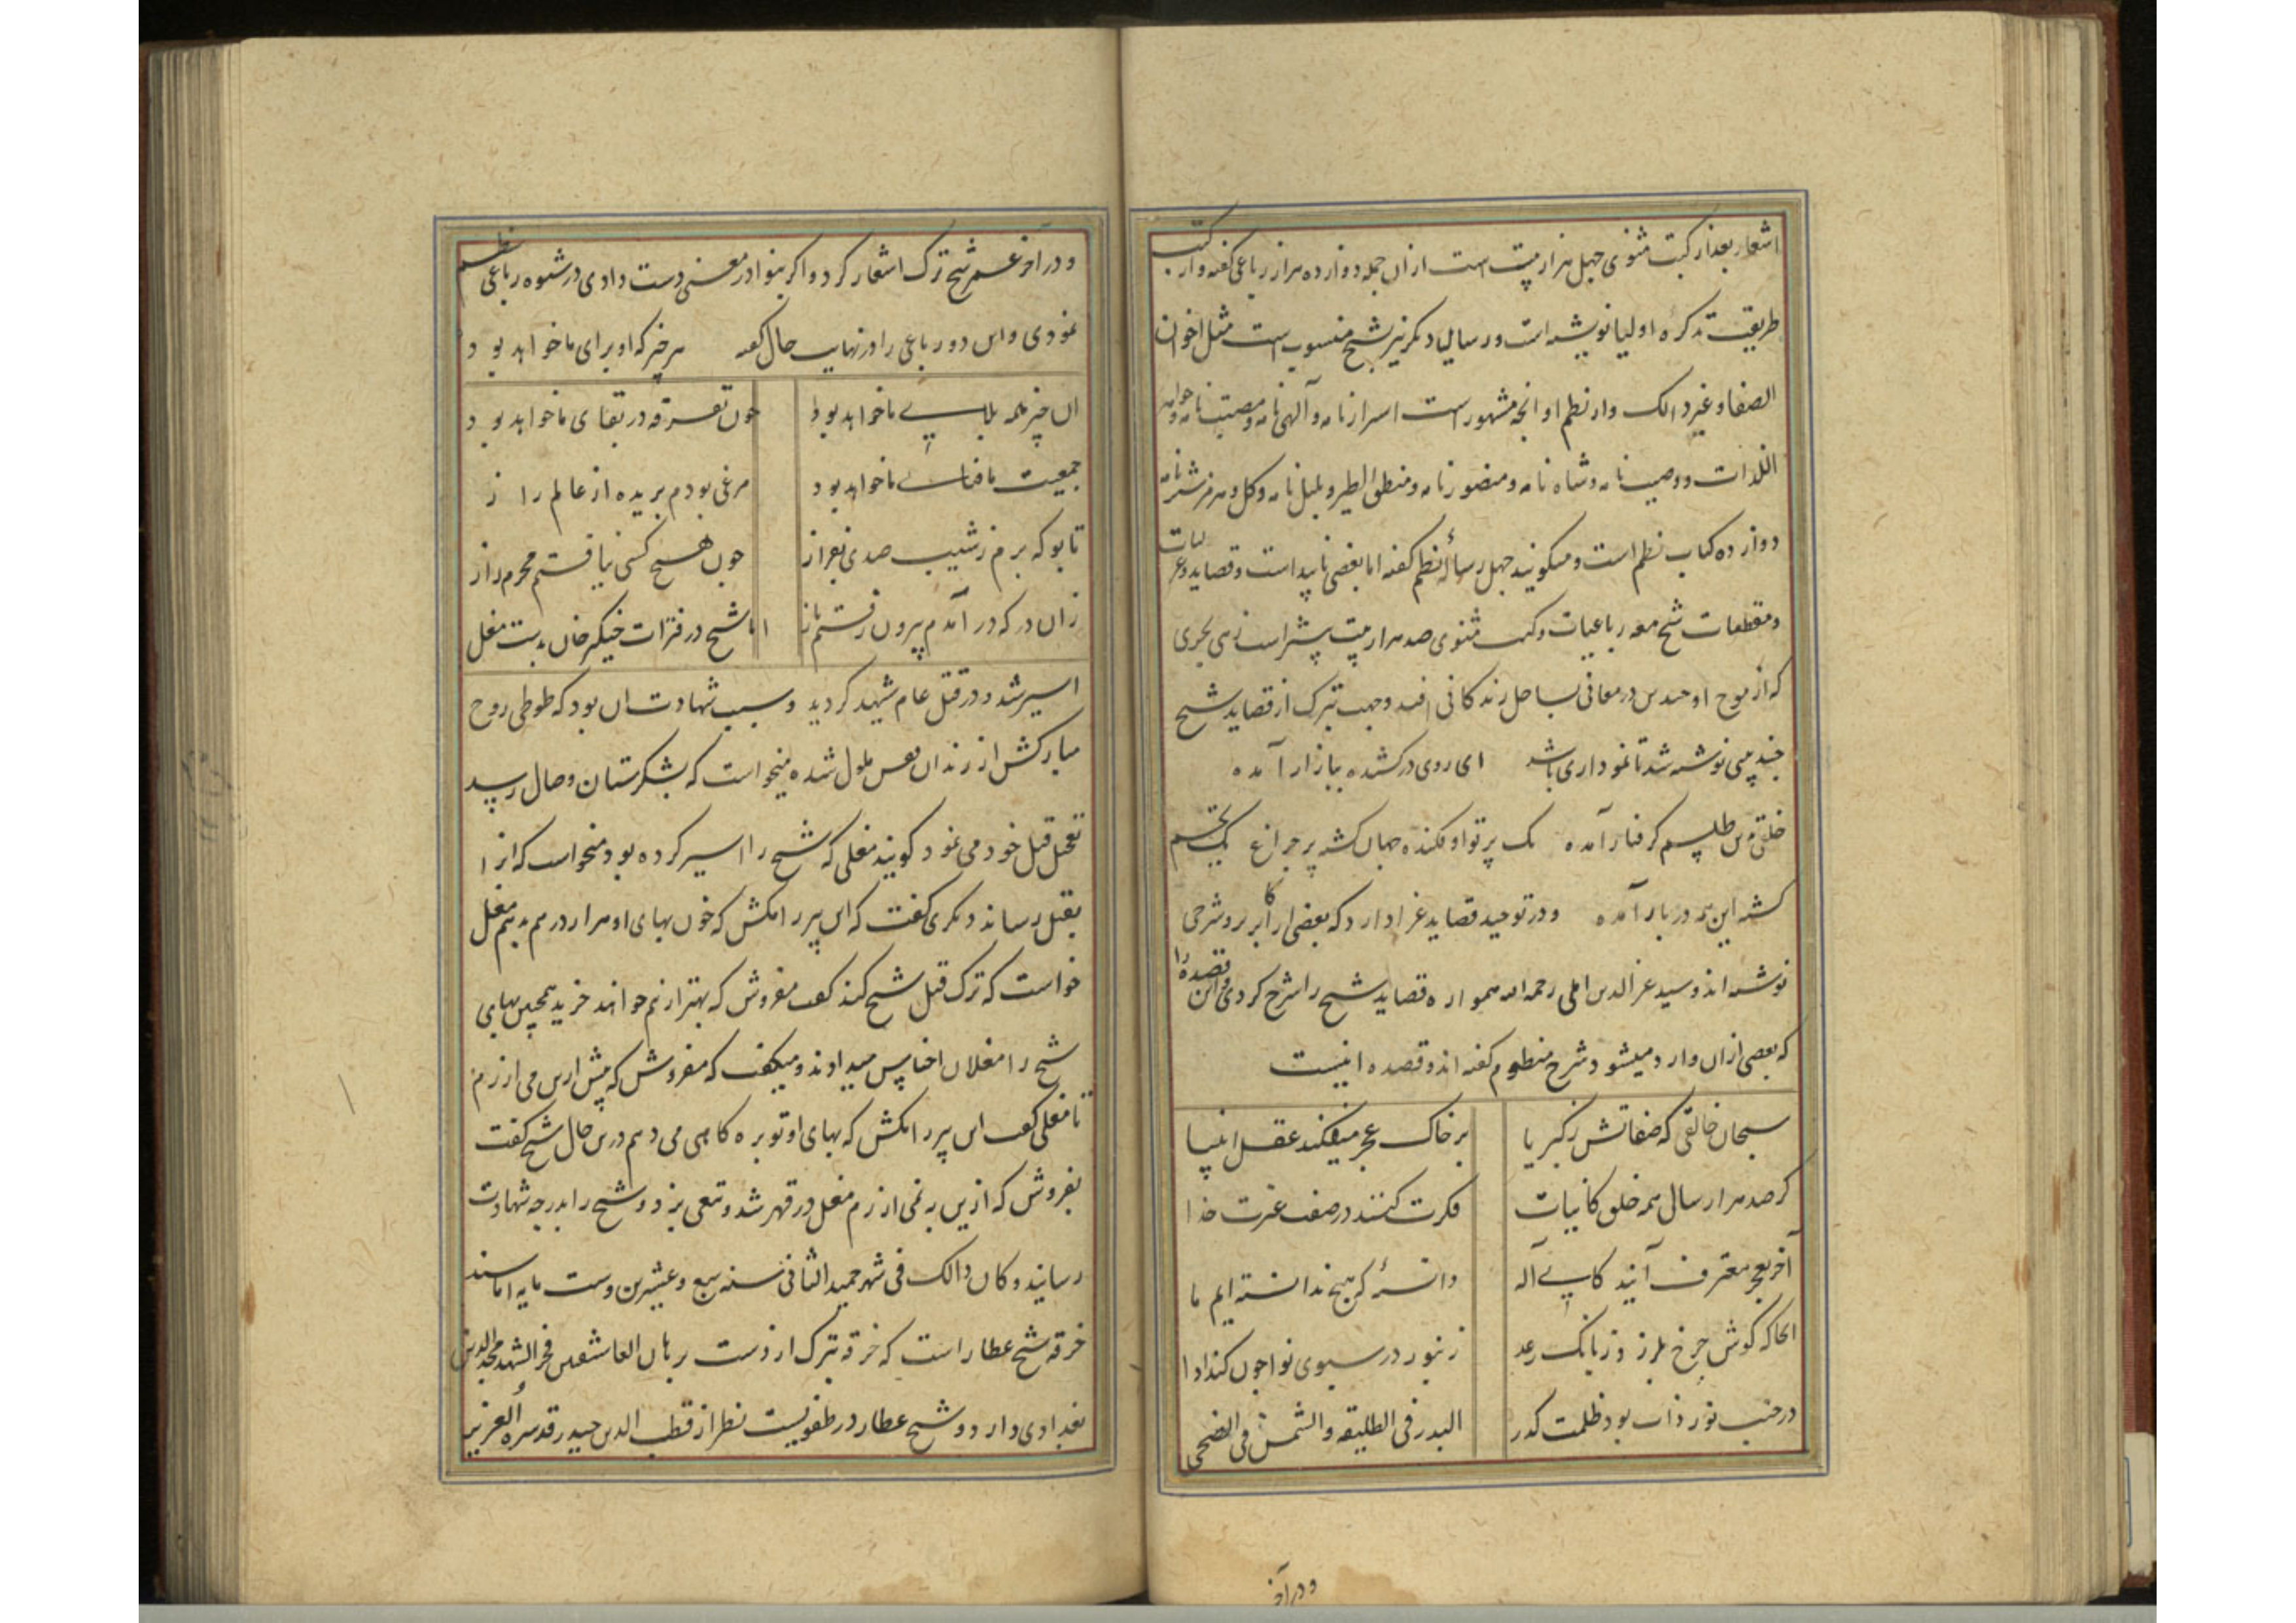 اشعار بعد از کتب مثنوی چهل هزار بیت است از ان جمله دوازده هزار رباعی گفته و از کتب
طریقت تذکره اولیا نوشته است و رسالها دیگر نیز بشیخ منسوب است مثل اخوان
الصفا و غیر ذالک و از نظم او انچه مشهور است اسرار نامه و الهی نامه و مصیبت نامه و جواهر
اللذات و وصیت نامه و شاه نامه و منصور نامه و منطق الطیر و بلبل نامه و گل و هرمز شتر نامه
دوازده کتاب نظم است و میگویند چهل رساله نظم گفته اما بعضی ناپیداست و قصاید و غزلیات
و مقطعات شیخ معه رباعیات و کتب مثنوی صد هزار بیت بیشتر است زهی بحری
که از موج او چندین در معانی بساحل زندگانی افتد و جهت تبرک از قصاید شیخ
چند بیتی نوشته شد تا نموداری باشد ای روی درکشیده ببازار آمده
خلقی بدین طلسم گرفتار آمده یک پرتو اوفکنده جهان گشته پر چراغ یک تخم
کشته این همه در بار آمده و در توحید قصاید غرا دارد که بعضی از اکابر برو شرحی
نوشته اند و سید عز الدین املی رحمه الله همواره قصاید شیخ را شرح کردی و این قصیده را
که بعضی ازان وارد میشود شرح منظوم گفته اند و قصیده اینست
سبحان خالقی که صفاتش ز کبریا بر خاک عجز میفکند عقل انبیا
گر صد هزار سال همه خلق کاینات فکرت کنند در صفت عزت خدا
آخر بعجز معترف آیند کای آله دانسته گر هیچ ندانسته ایم ما
انجا که گوش چرخ بلرزد ز بانگ رعد زنبور در سبوی نوا چون کند ادا
در جنب نور ذات بود ظلمت کدر البدر فی الطلیقه والشمس فی الضحی
و در آخر
و در آخر عمر شیخ ترک اشعار کرد و اگر بنوادر معنی دست دادی در شیوه رباعی نظم
نمودی و این دو رباعی را در نهایت حال گفته هر چیز که او برای ما خواهد بود
ان چیز همه بلای ما خواهد بود چون تفرقه در بقای ما خواهد بود
جمعیت ما فنای ما خواهد بود مرغی بودم پریده از عالم راز
تا بو که برم ز شیب صیدی بفراز چون هیچ کسی نیافتم محرم راز
زان در که در آمدم بیرون رفتم باز اما شیخ در فترات چنگیز خان بدست مغل
اسیر شد و در قتل عام شهید گردید و سبب شهادت ان بود که طوطی روح
مبارکش از زندان قفس ملول شده میخواست که بشکرستان وصال رسد
تعجیل قتل خود می نمود گویند مغلی که شیخ را اسیر کرده بود میخواست که او را
بقتل رساند دیگری گفت که این پیر را مکش که خون بهای او هزار درم بدهم مغل
خواست که ترک قتل شیخ کند گفت مفروش که بهتر ازینم خواهند خرید همچنین بهای
شیخ را مغلان اضافه میدادند و میگفت که مفروش که بیش ازین می ارزم
تا مغلی گفت این پیر را مکش که بهای او توبره کاهی می دهم درین حال شیخ گفت
بفروش که ازین به نمی ارزم مغل در قهر شد و تیغی بزد و شیخ را بدرجه شهادت
رسانید و کان ذالک فی شهر جمید الثانی سنه سبع و عشرین و ست مایه اما سند
خرقه شیخ عطار است که خرقه تبرک از دست برهان العاشقین فخر الشهدا مجد الدین
بغدادی دارد و شیخ عطار در طفولیت نظر از قطب الدین حیدر قدس سره العزیز